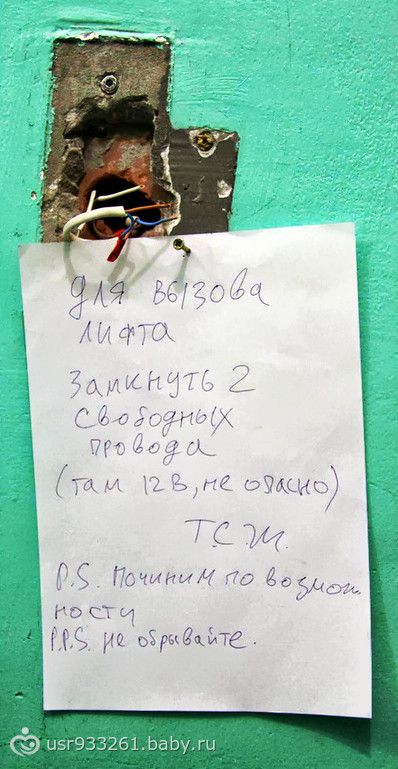 для вызова
лифта
Замкнуть 2
свободных
провода
(там 12 В, не опасно)
Т.С.Ж.
P.S. Починим по возмож-
ности
P.P.S. не обрывайте.
usr933261.baby.ru